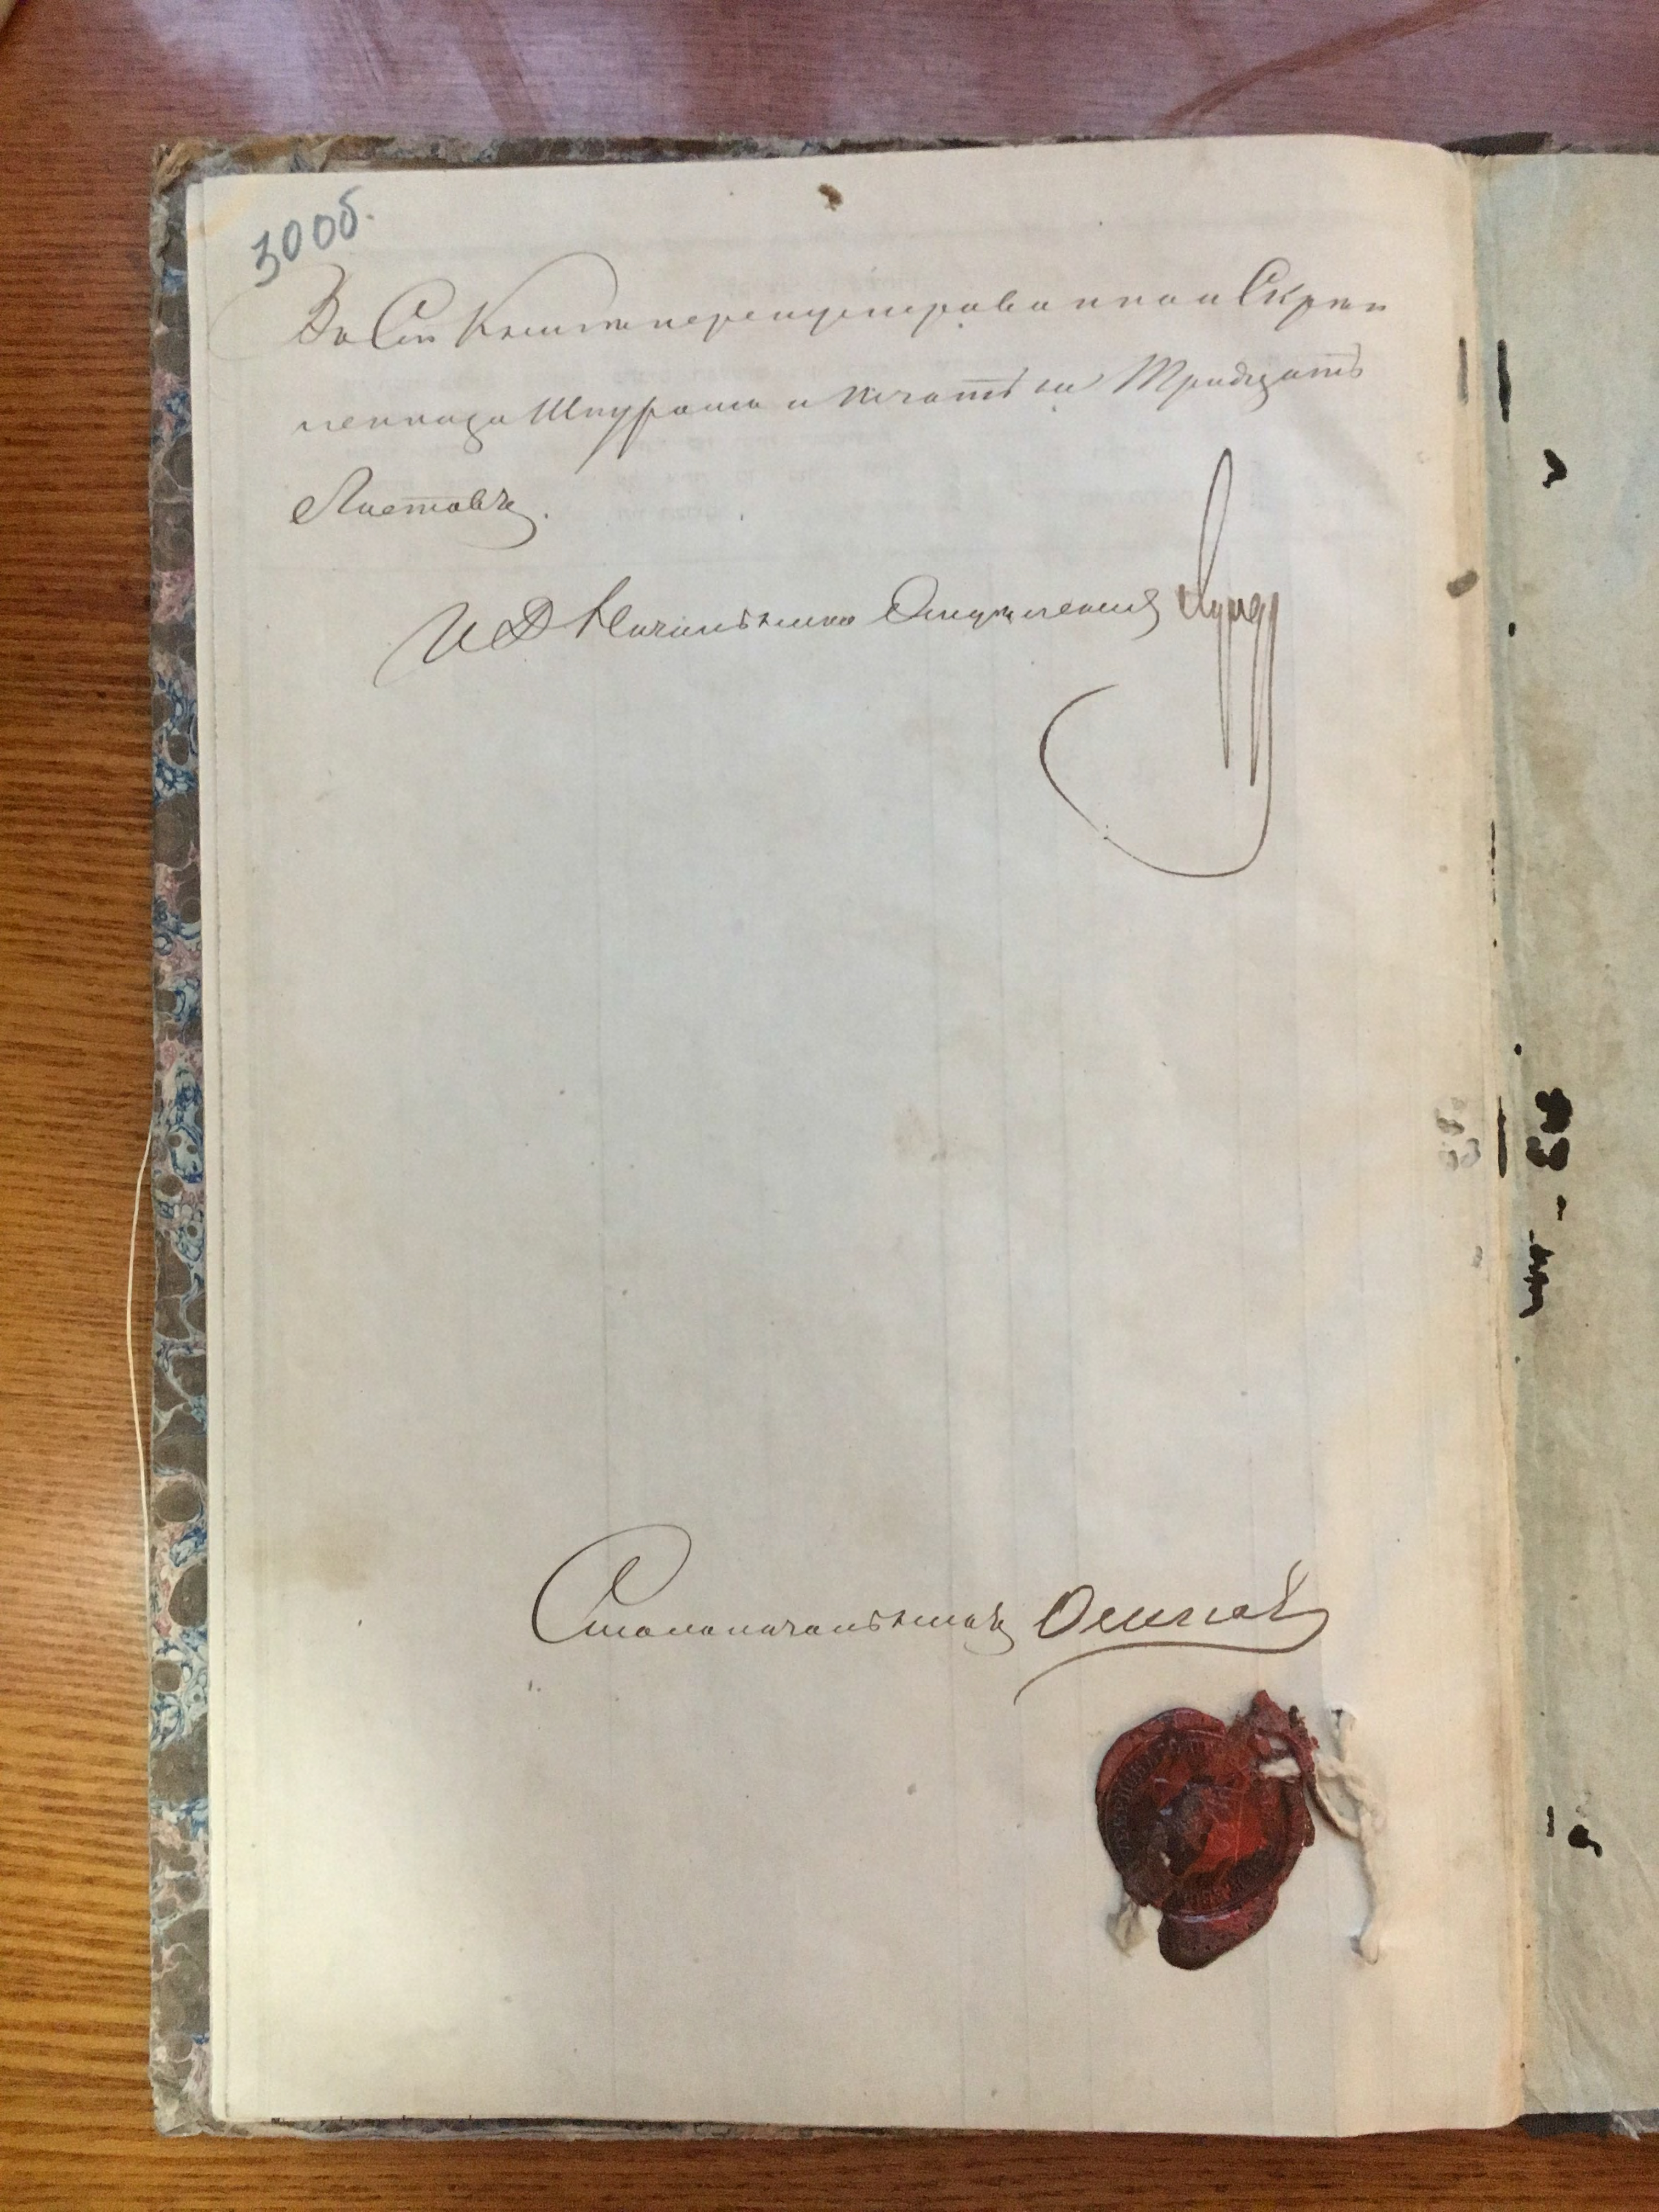 30 об.
Въ Сей Книге перенумерованной и Скреп
ленной за Шнуромъ и печатью Тридцать
Листовъ.
И Д Начальника Отделения
Столоначальникъ Осипов